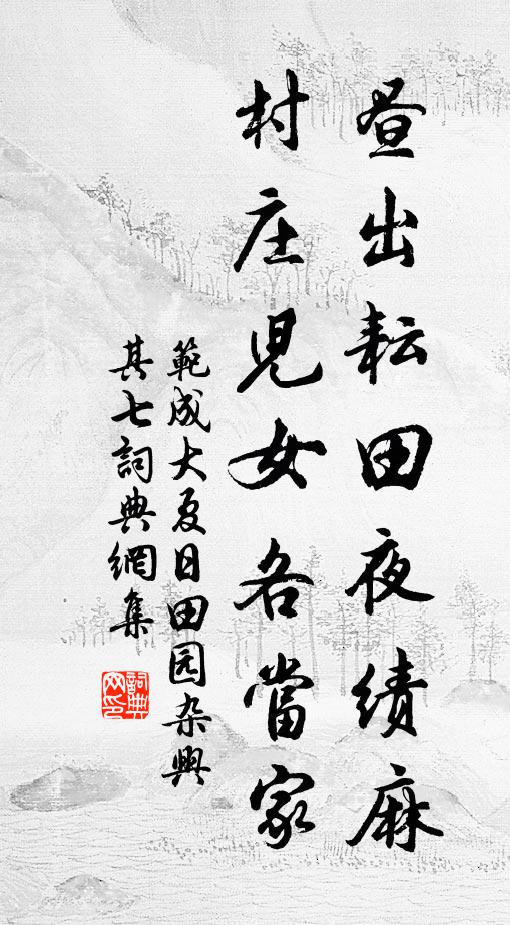 昼出耘田夜绩麻
村庄児女各當家
範成大夏日田园杂興
其七詞典網集
詞典网印